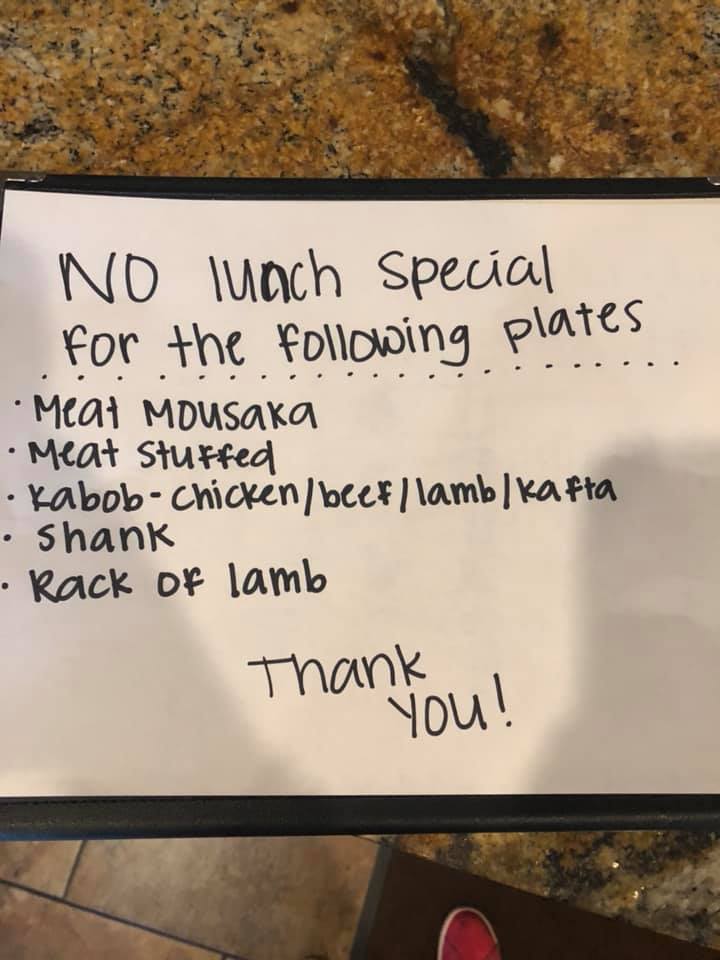 NO lunch special
for the following plates
. . . . . . . . . . . . . . . . . .
· Meat Mousaka
· Meat Stuffed
· Kabob - chicken/beef/lamb/kafta
· Shank
· Rack of lamb
Thank
you!